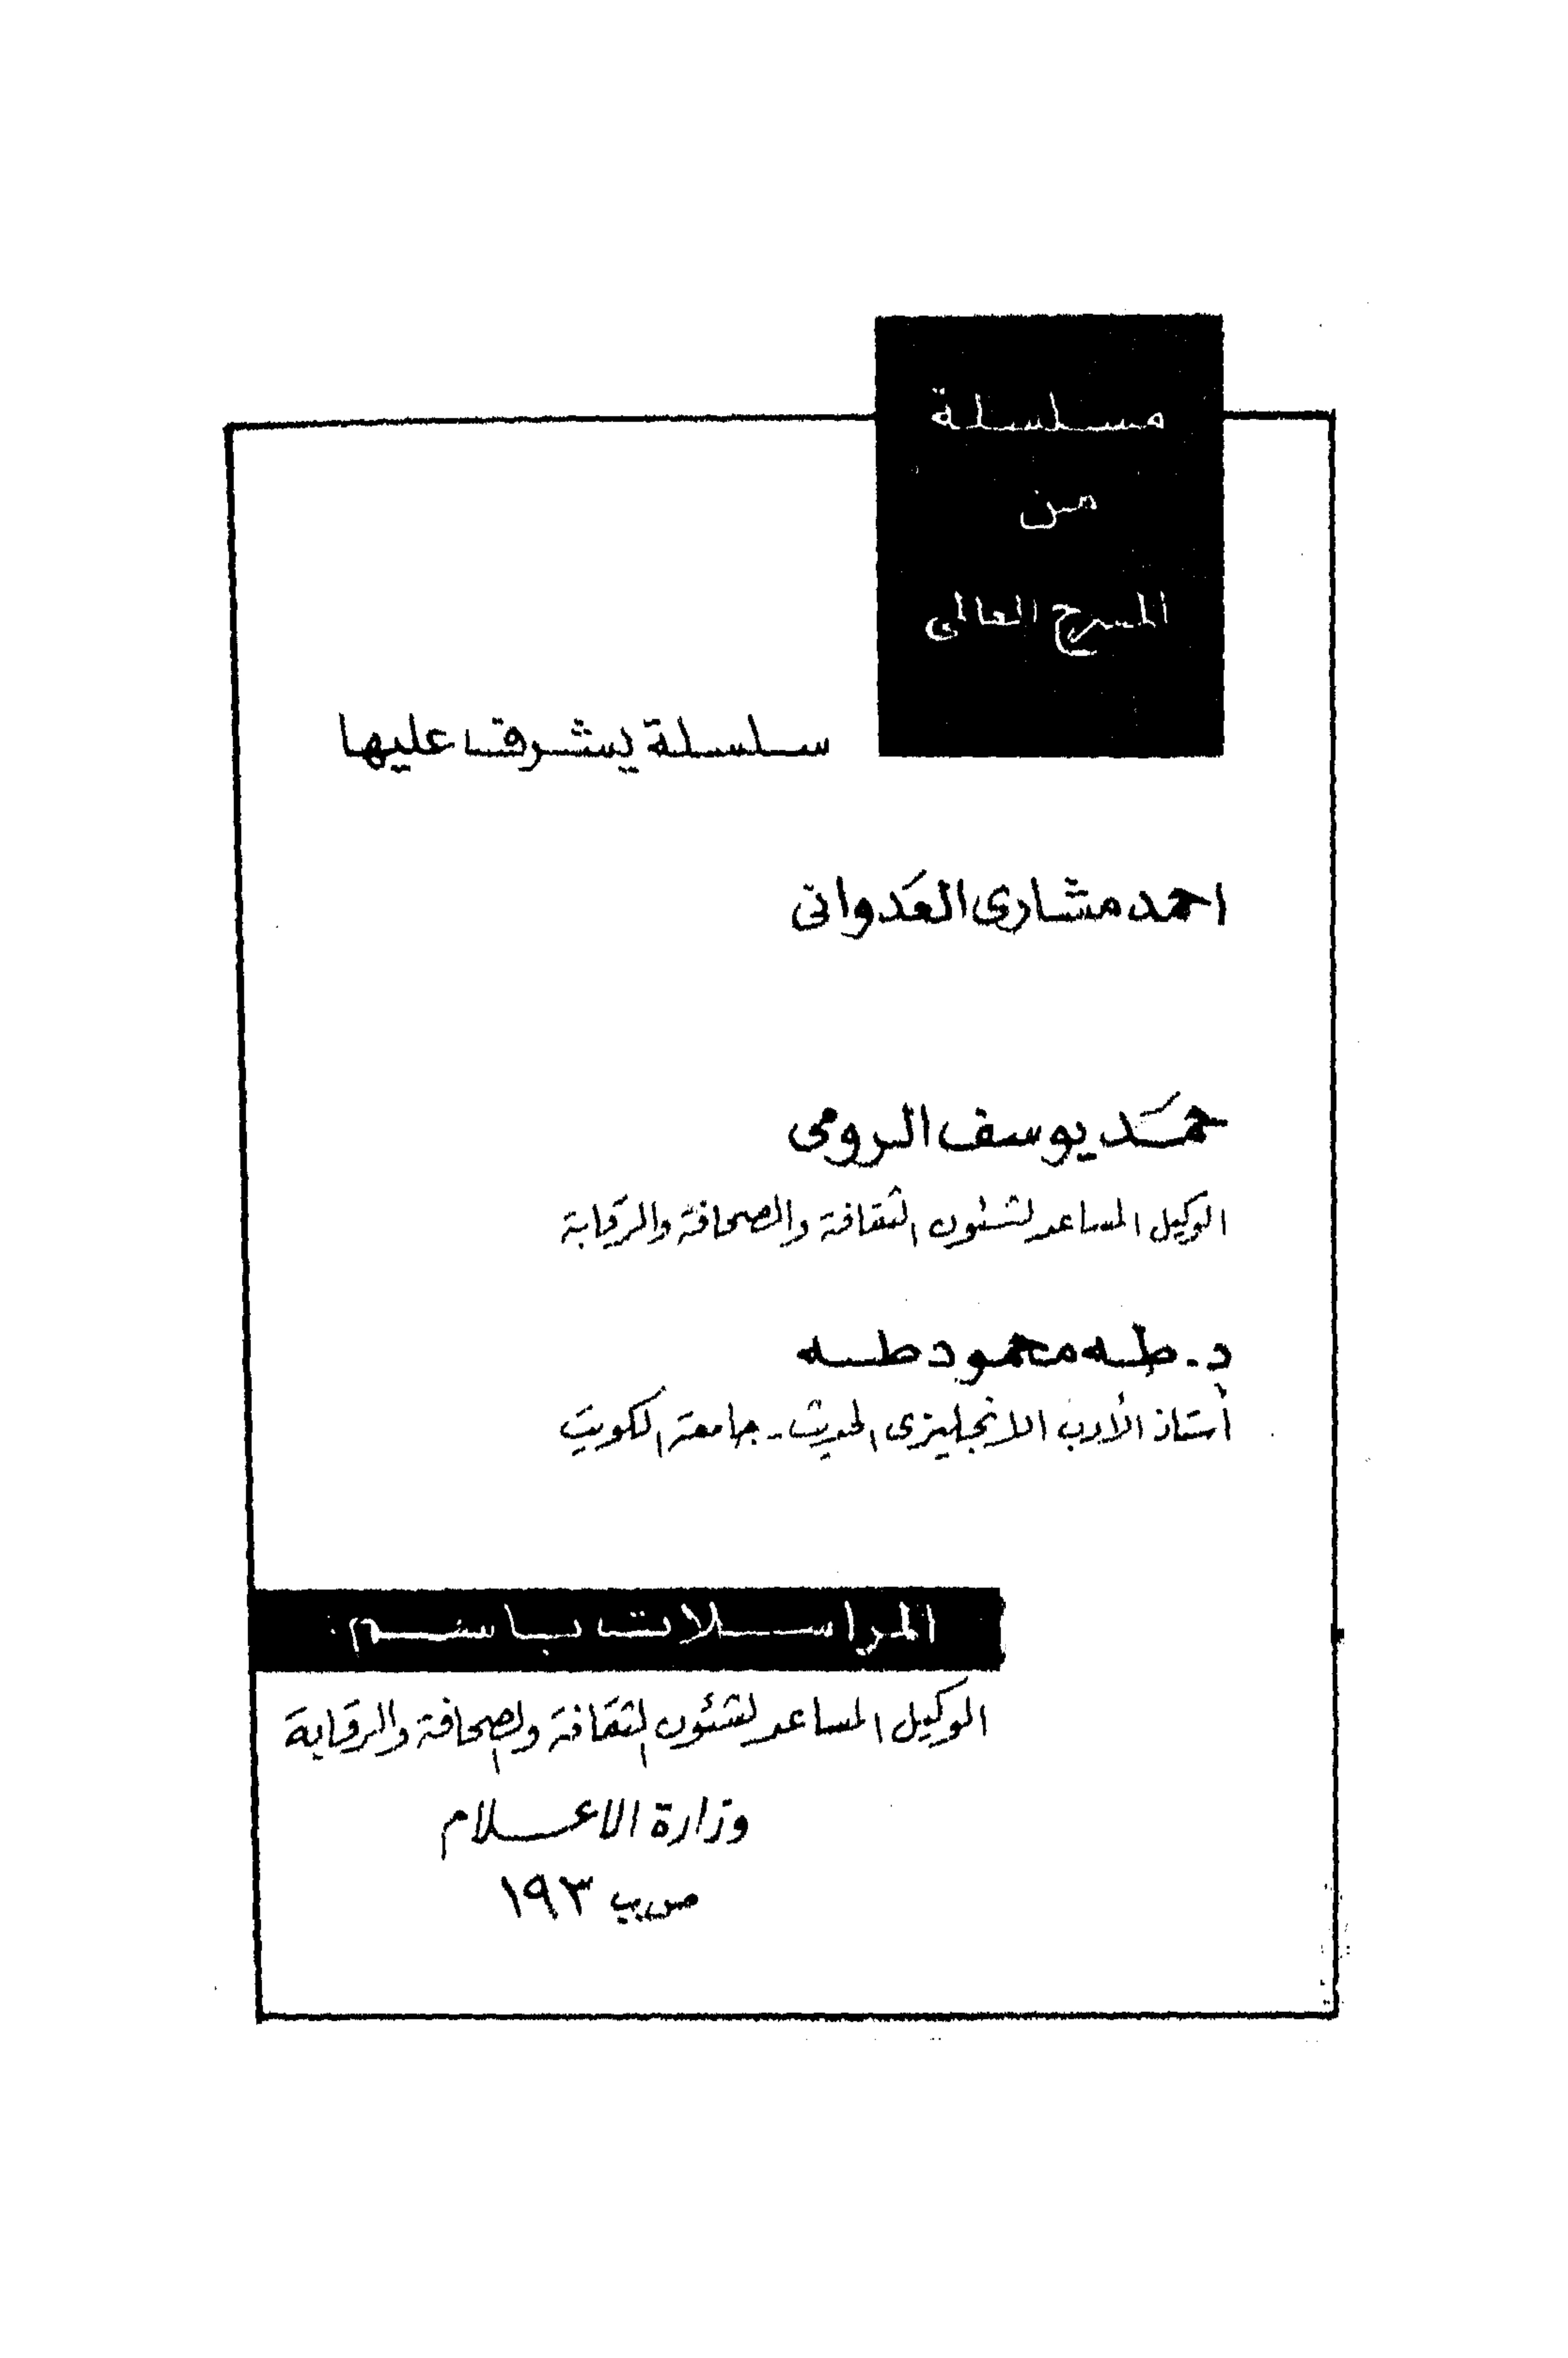 مسلسلة
من
المسرح العالمى
سلسلة يشرف عليها
احمد مشارى العدوانى
حمد يوسف الرومى
الوكيل المساعد لشئون الثقافة والصحافة والرقابة
د. طه محمود طه
أستاذ الأدب الانجليزى الحديث - جامعة الكويت
المراسلات باسم:
الوكيل المساعد لشئون الثقافة والصحافة والرقابة
وزارة الاعلام
ص ب ١٩٣